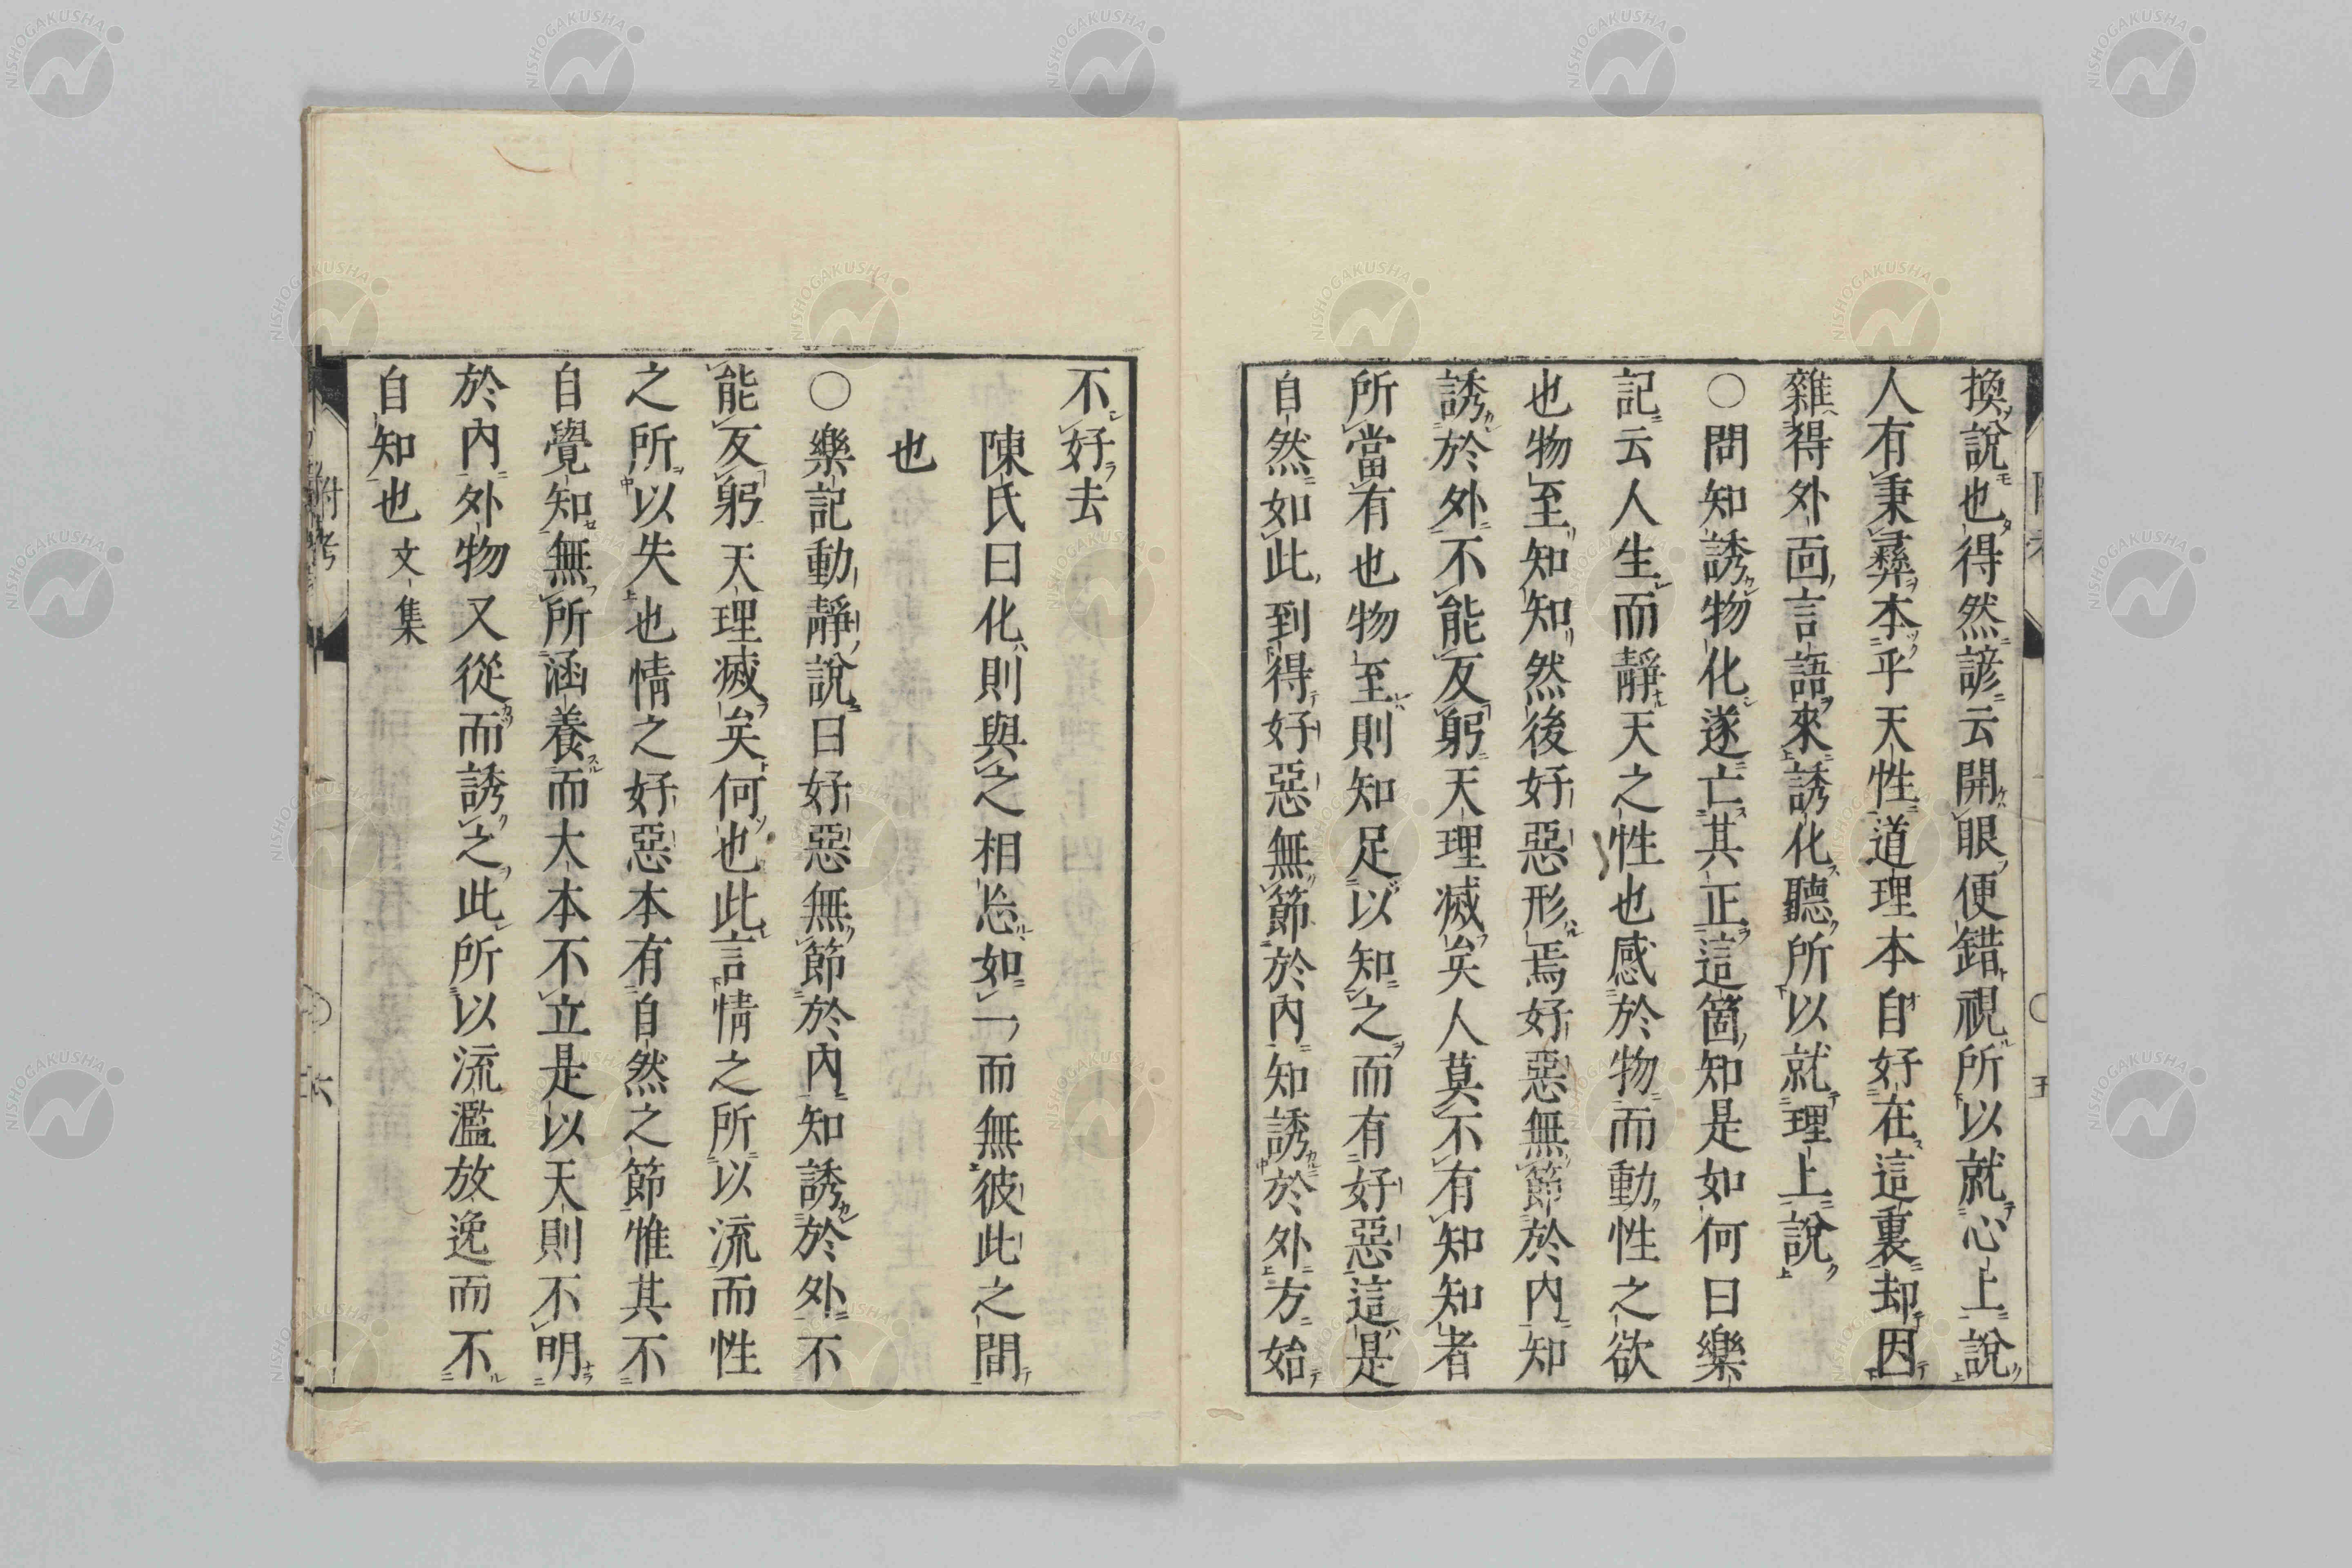 換說也得然諺云開眼便錯視所以就心上說
人有秉彞本乎天性道理本自好在這裏却因
雜得外面言語來誘化聽所以就理上說
○問知誘物化遂亡其正這箇知是如何曰樂
記云人生而靜天之性也感於物而動性之欲
也物至知知然後好惡形焉好惡無節於內知
誘於外不能反躬天理滅矣人莫不有知知者
所當有也物至則知足以知之而有好惡這是
自然如此到得好惡無節於內知誘於外方始
五
不好去
陳氏曰化則與之相忘如一而無彼此之間
也
○樂記動靜說曰好惡無節於內知誘於外不
能反躬天理滅矣何也此言情之所以流而性
之所以失也情之好惡本有自然之節惟其不
自覺知無所涵養而大本不立是以天則不明
於內外物又從而誘之此所以流濫放逸而不
自知也文集
附考
六